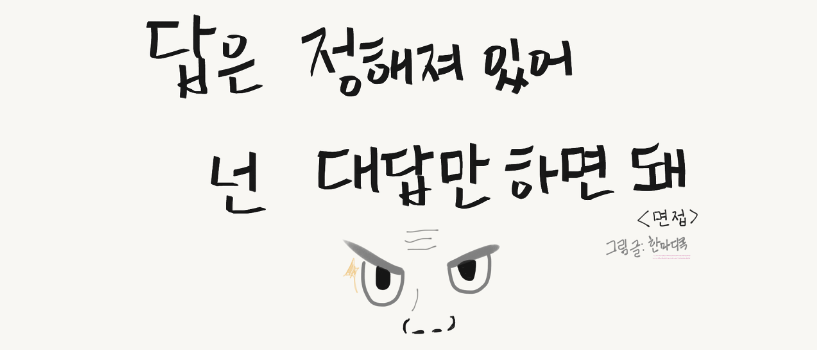 답은 정해져 있어
넌 대답만 하면 돼
<면접>
그림글: 한마디로